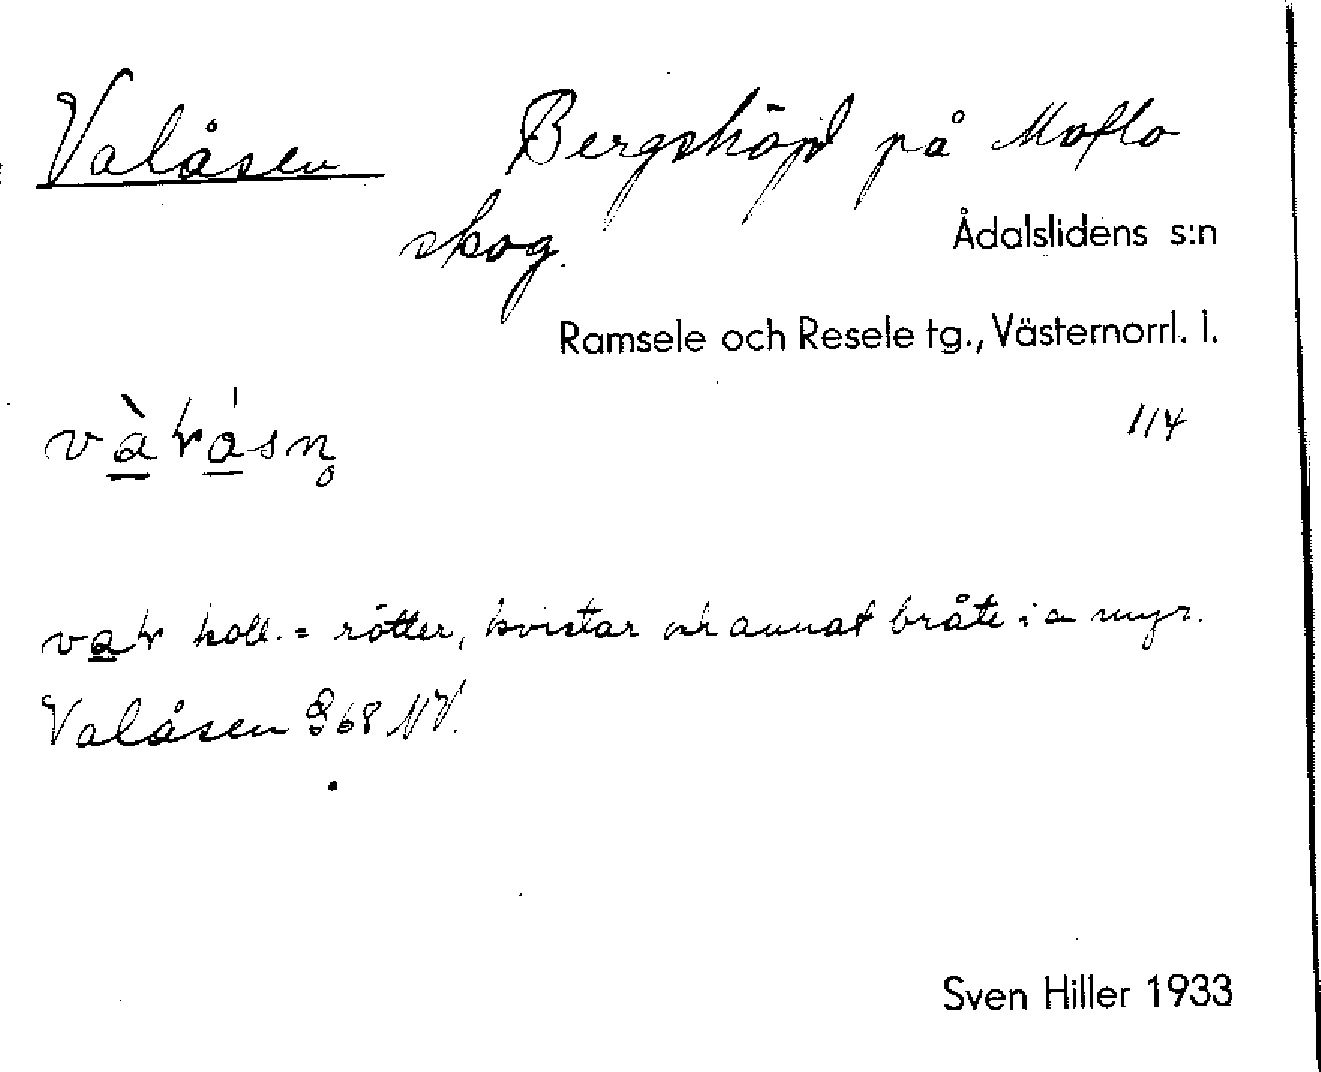 Valåsen Bergshöjd på Moflo
skog.
Ådalslidens s:n
Ramsele och Resele tg., Västernorrl. l.
114
koll. = rötter, kvistar och annat bråte i en myr.
Valåsen 368 NV.
Sven Hiller 1933